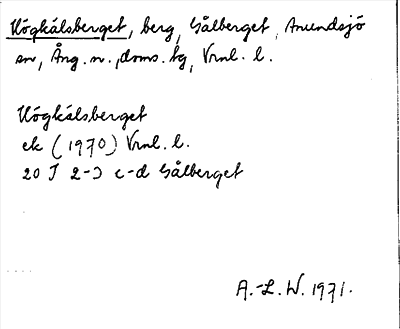 Högkålsberget, berg, Gålberget, Anundsjö
sn, Ång. n., doms. hg, Vrnl. l.
Högkålsberget
ek (1970) Vrnl. l.
20 J 2-3 c-d Gålberget
A.-L. W. 1971.